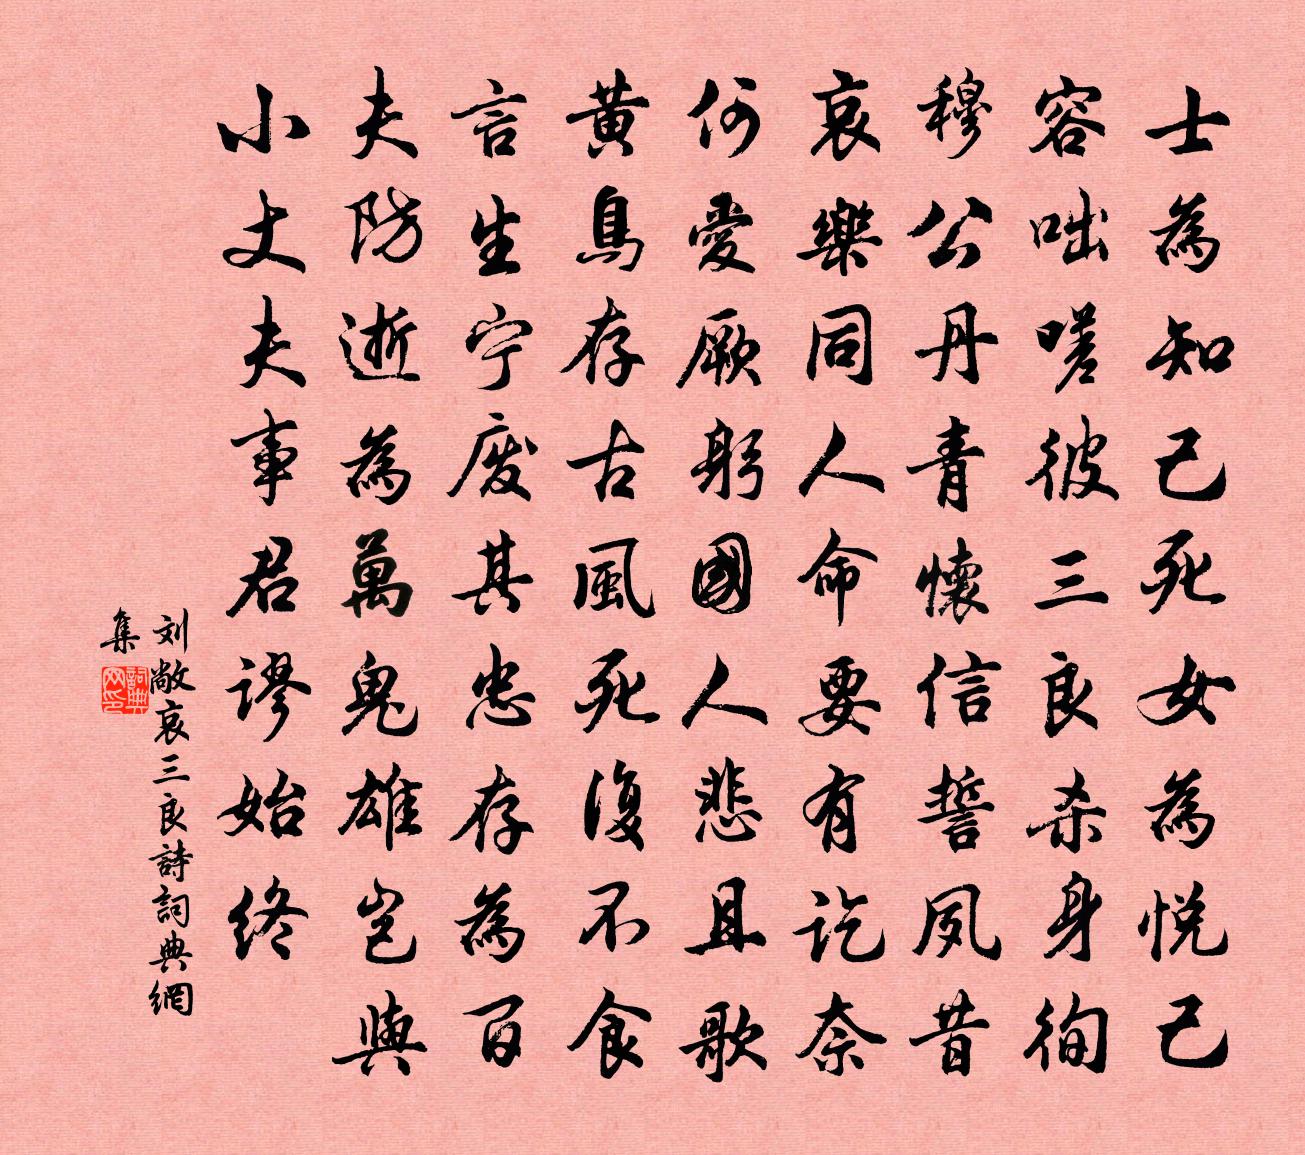 士為知己死女為悦己
容咄嗟彼三良杀身徇
穆公丹青懷信誓夙昔
哀樂同人命要有讫奈
何愛厥躬國人悲且歌
黄鳥存古風死復不食
言生宁废其忠存為百
夫防逝為萬鬼雄岂與
小丈夫事君谬始终
刘敞哀三良詩詞典網
集
詞典
网印